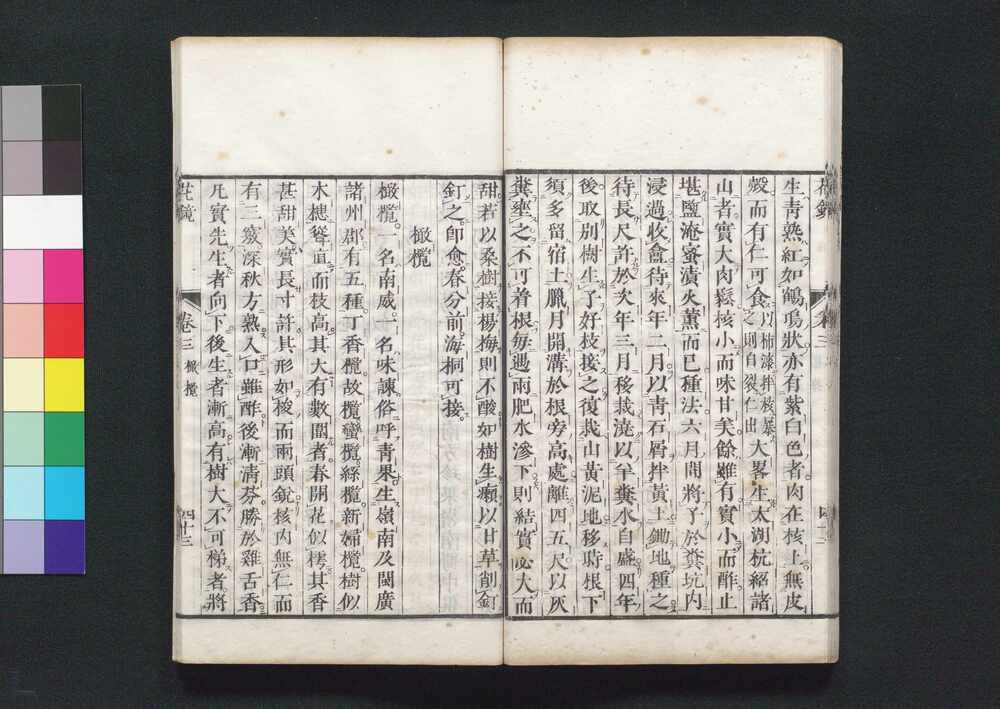 生青熟紅如鶴頂狀亦有紫白色者肉在核上無皮
殼而有仁可食以柿漆拌核暴之則自裂仁出大畧生太湖杭紹諸
山者實大肉鬆核小而味甘美餘雖有實小而酢止
堪鹽淹蜜漬火薫而已種法六月間將子於糞坑內
浸過收盒待來年二月以青石屑拌黃土鋤地種之
待長尺許於次年三月移栽澆以羊糞水自盛四年
後取別樹生子好枝接之復栽山黃泥地移時根下
須多留宿土臘月開溝於根旁高處離四五尺以灰
糞壅之不可著根每遇雨肥水滲下則結實必大而
甜若以桑樹接楊梅則不酸如樹生癩以甘草削釘
釘之卽愈春分前海桐可接
橄欖
橄欖一名南威一名味諫俗呼青果生嶺南及閩廣
諸州郡有五種丁香欖故欖蠻欖絲欖新婦欖樹似
木槵聳直而枝高其大有數圍者春開花似樗其香
甚甜美實長寸許其形如梭而兩頭銳核內無仁而
有三竅深秋方熟入口雖酢後漸清芬勝於雞舌香
凡實先生者向下後生者漸高有樹大不可梯者將
花鏡 卷三 橄欖 四十三